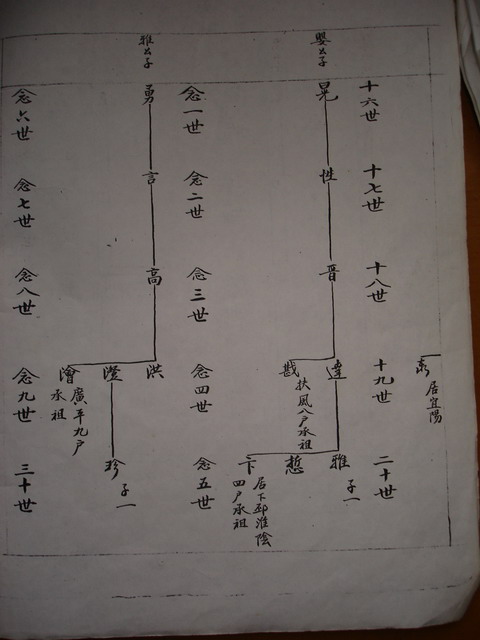 十六世
十七世
十八世
十九世
二十世
居宜陽
嬰公子
晃
性
晋
達
戡
扶風八户承祖
雅
子一
悊
卞
居下邳淮陰
四户承祖
念一世
念二世
念三世
念四世
念五世
雅公子
勇
言
高
洪
澄
澮
廣平九户
承祖
珍
子一
念六世
念七世
念八世
念九世
三十世